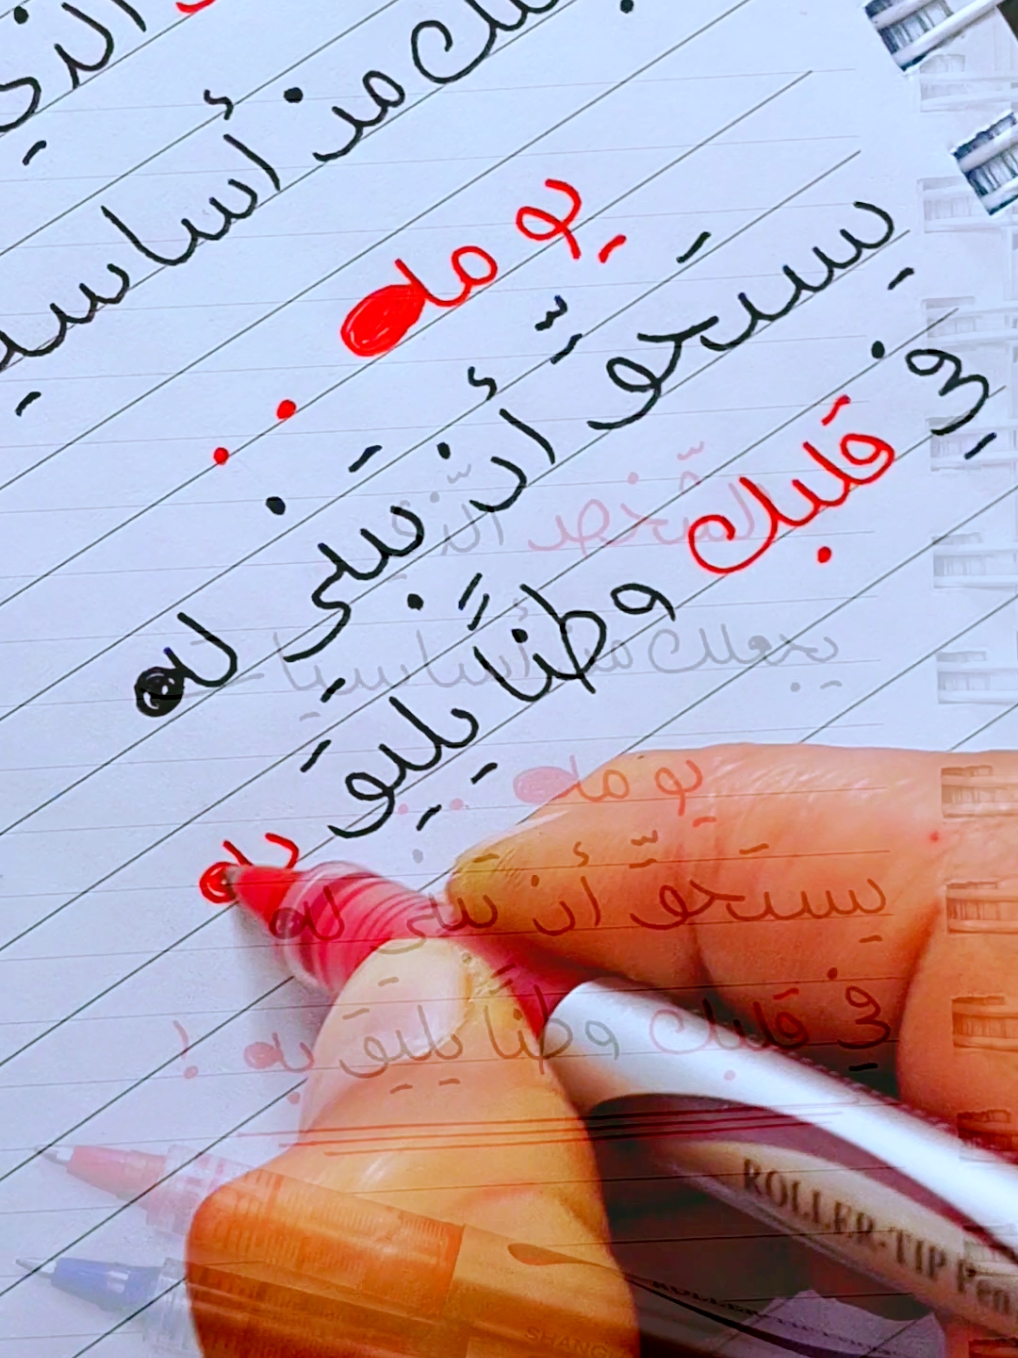 الذي
يجعلك من أساسيا
يومه . .
يستحقّ أن تبني له
في قلبك وطنًا يليق به
الشخص الذي
يجعلك من أساسيات
يومه . .
يستحقّ أن تبني له
في قلبك وطنًا يليق به !
ROLLER-TIP Pen
SHANG